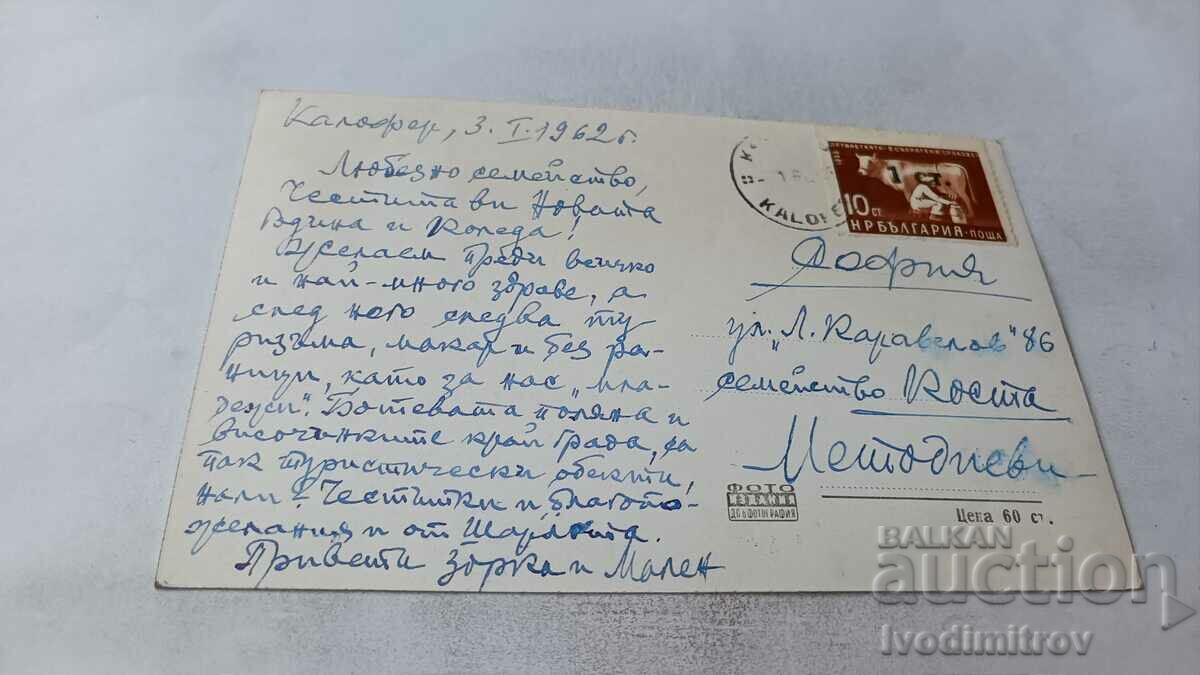 Калофер, 3. I. 1962 г.
Любезно семейство,
Честита ви Новата
година и Коледа!
Желаем преди всичко
и най-много здраве, а
след него следва ту-
ризъма, макар и без ра-
ници, като за нас „мла-
дежи". Ботевата поляна и
височинките край града, са
пак туристически обекти,
нали? Честитки и благопо-
желания и от
Привети Зорка и
KALOFE
10 СТ.
1 СТ.
НР БЪЛГАРИЯ·ПОЩА
София
ул. „Л. Каравелов" 86
семейство Коста
Методиеви
ФОТО
ИЗДАНИЯ
ДП ФОТОГРАФИЯ
Цена 60 ст.
BALKAN
auction
Ivodimitrov